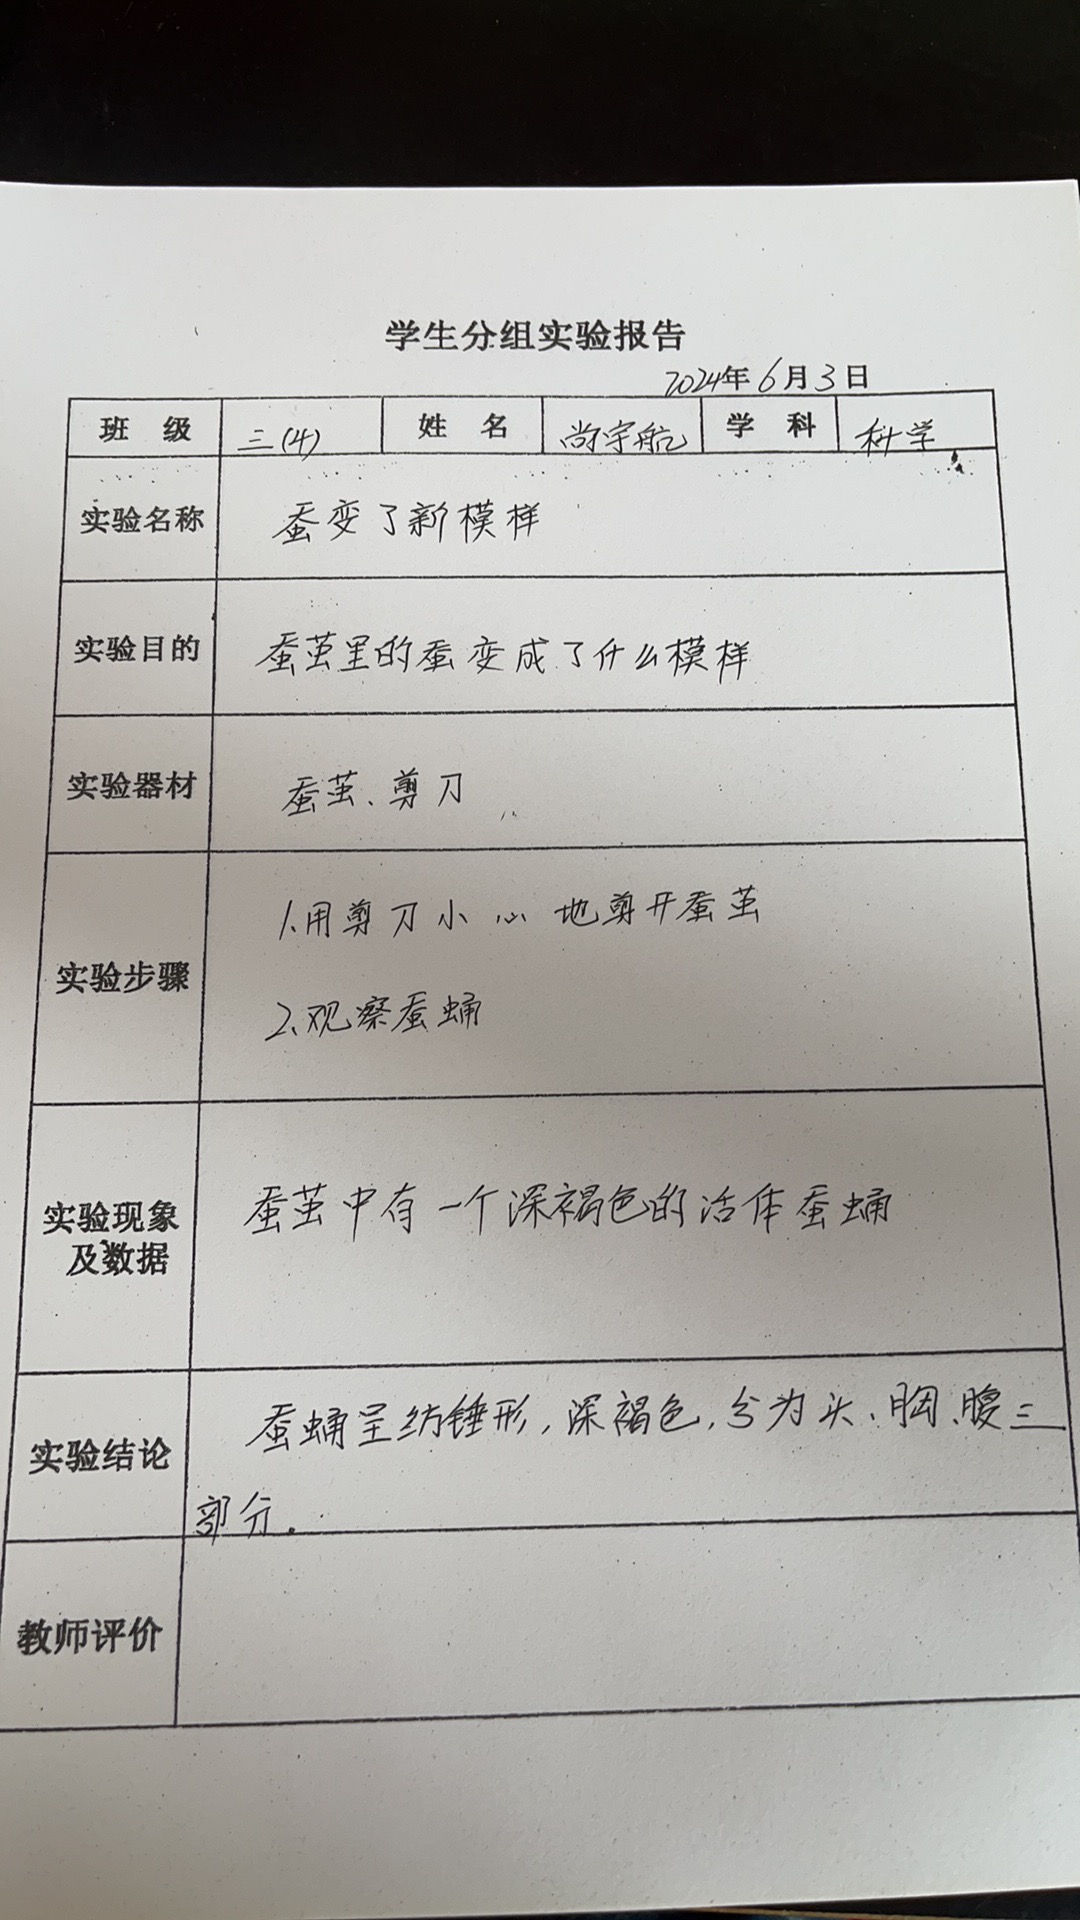 学生分组实验报告
2024年6月3日
班 级 三(4) 姓 名 尚宇航 学 科 科学
实验名称 蚕变了新模样
实验目的 蚕茧里的蚕变成了什么模样
实验器材 蚕茧、剪刀
实验步骤 1.用剪刀小心地剪开蚕茧
2、观察蚕蛹
实验现象
及数据 蚕茧中有一个深褐色的活体蚕蛹
实验结论 蚕蛹呈纺锤形,深褐色,分为头、胸、腹三
部分。
教师评价